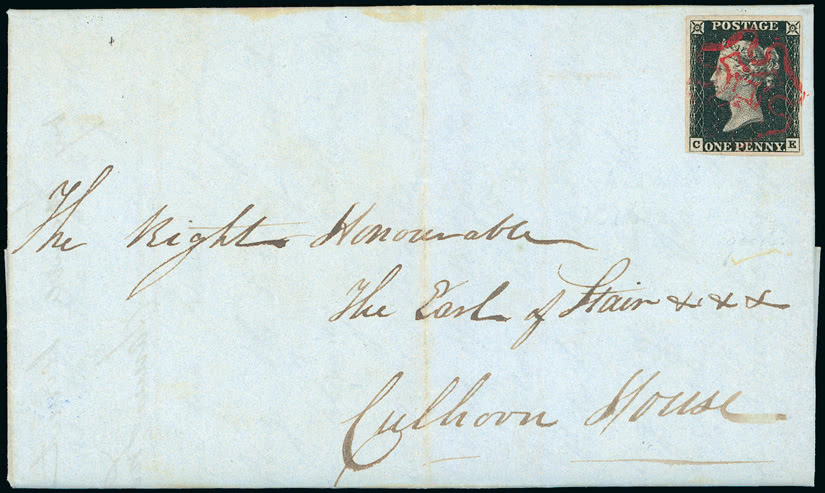 POSTAGE
C ONE PENNY K
The Right Honourable
The Earl of Stair &&&
Culhorn House